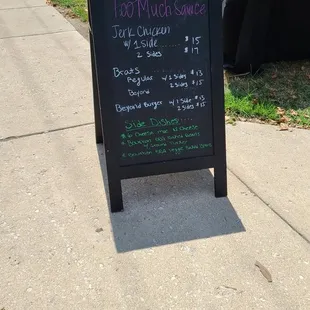 Too Much Sauce
Jerk Chicken
w/ 1 Side ....... $15
2 Sides $17
Brats
Regular w/ 2 Sides $13
Beyond 2 Sides $15
Beyond Burger w/ 1 side $13
2 sides $15
Side Dishes
Cheese Mac n' Cheese
Bourbon BBQ Baked Beans
w/ Smoked Turkey
Bourbon BBQ